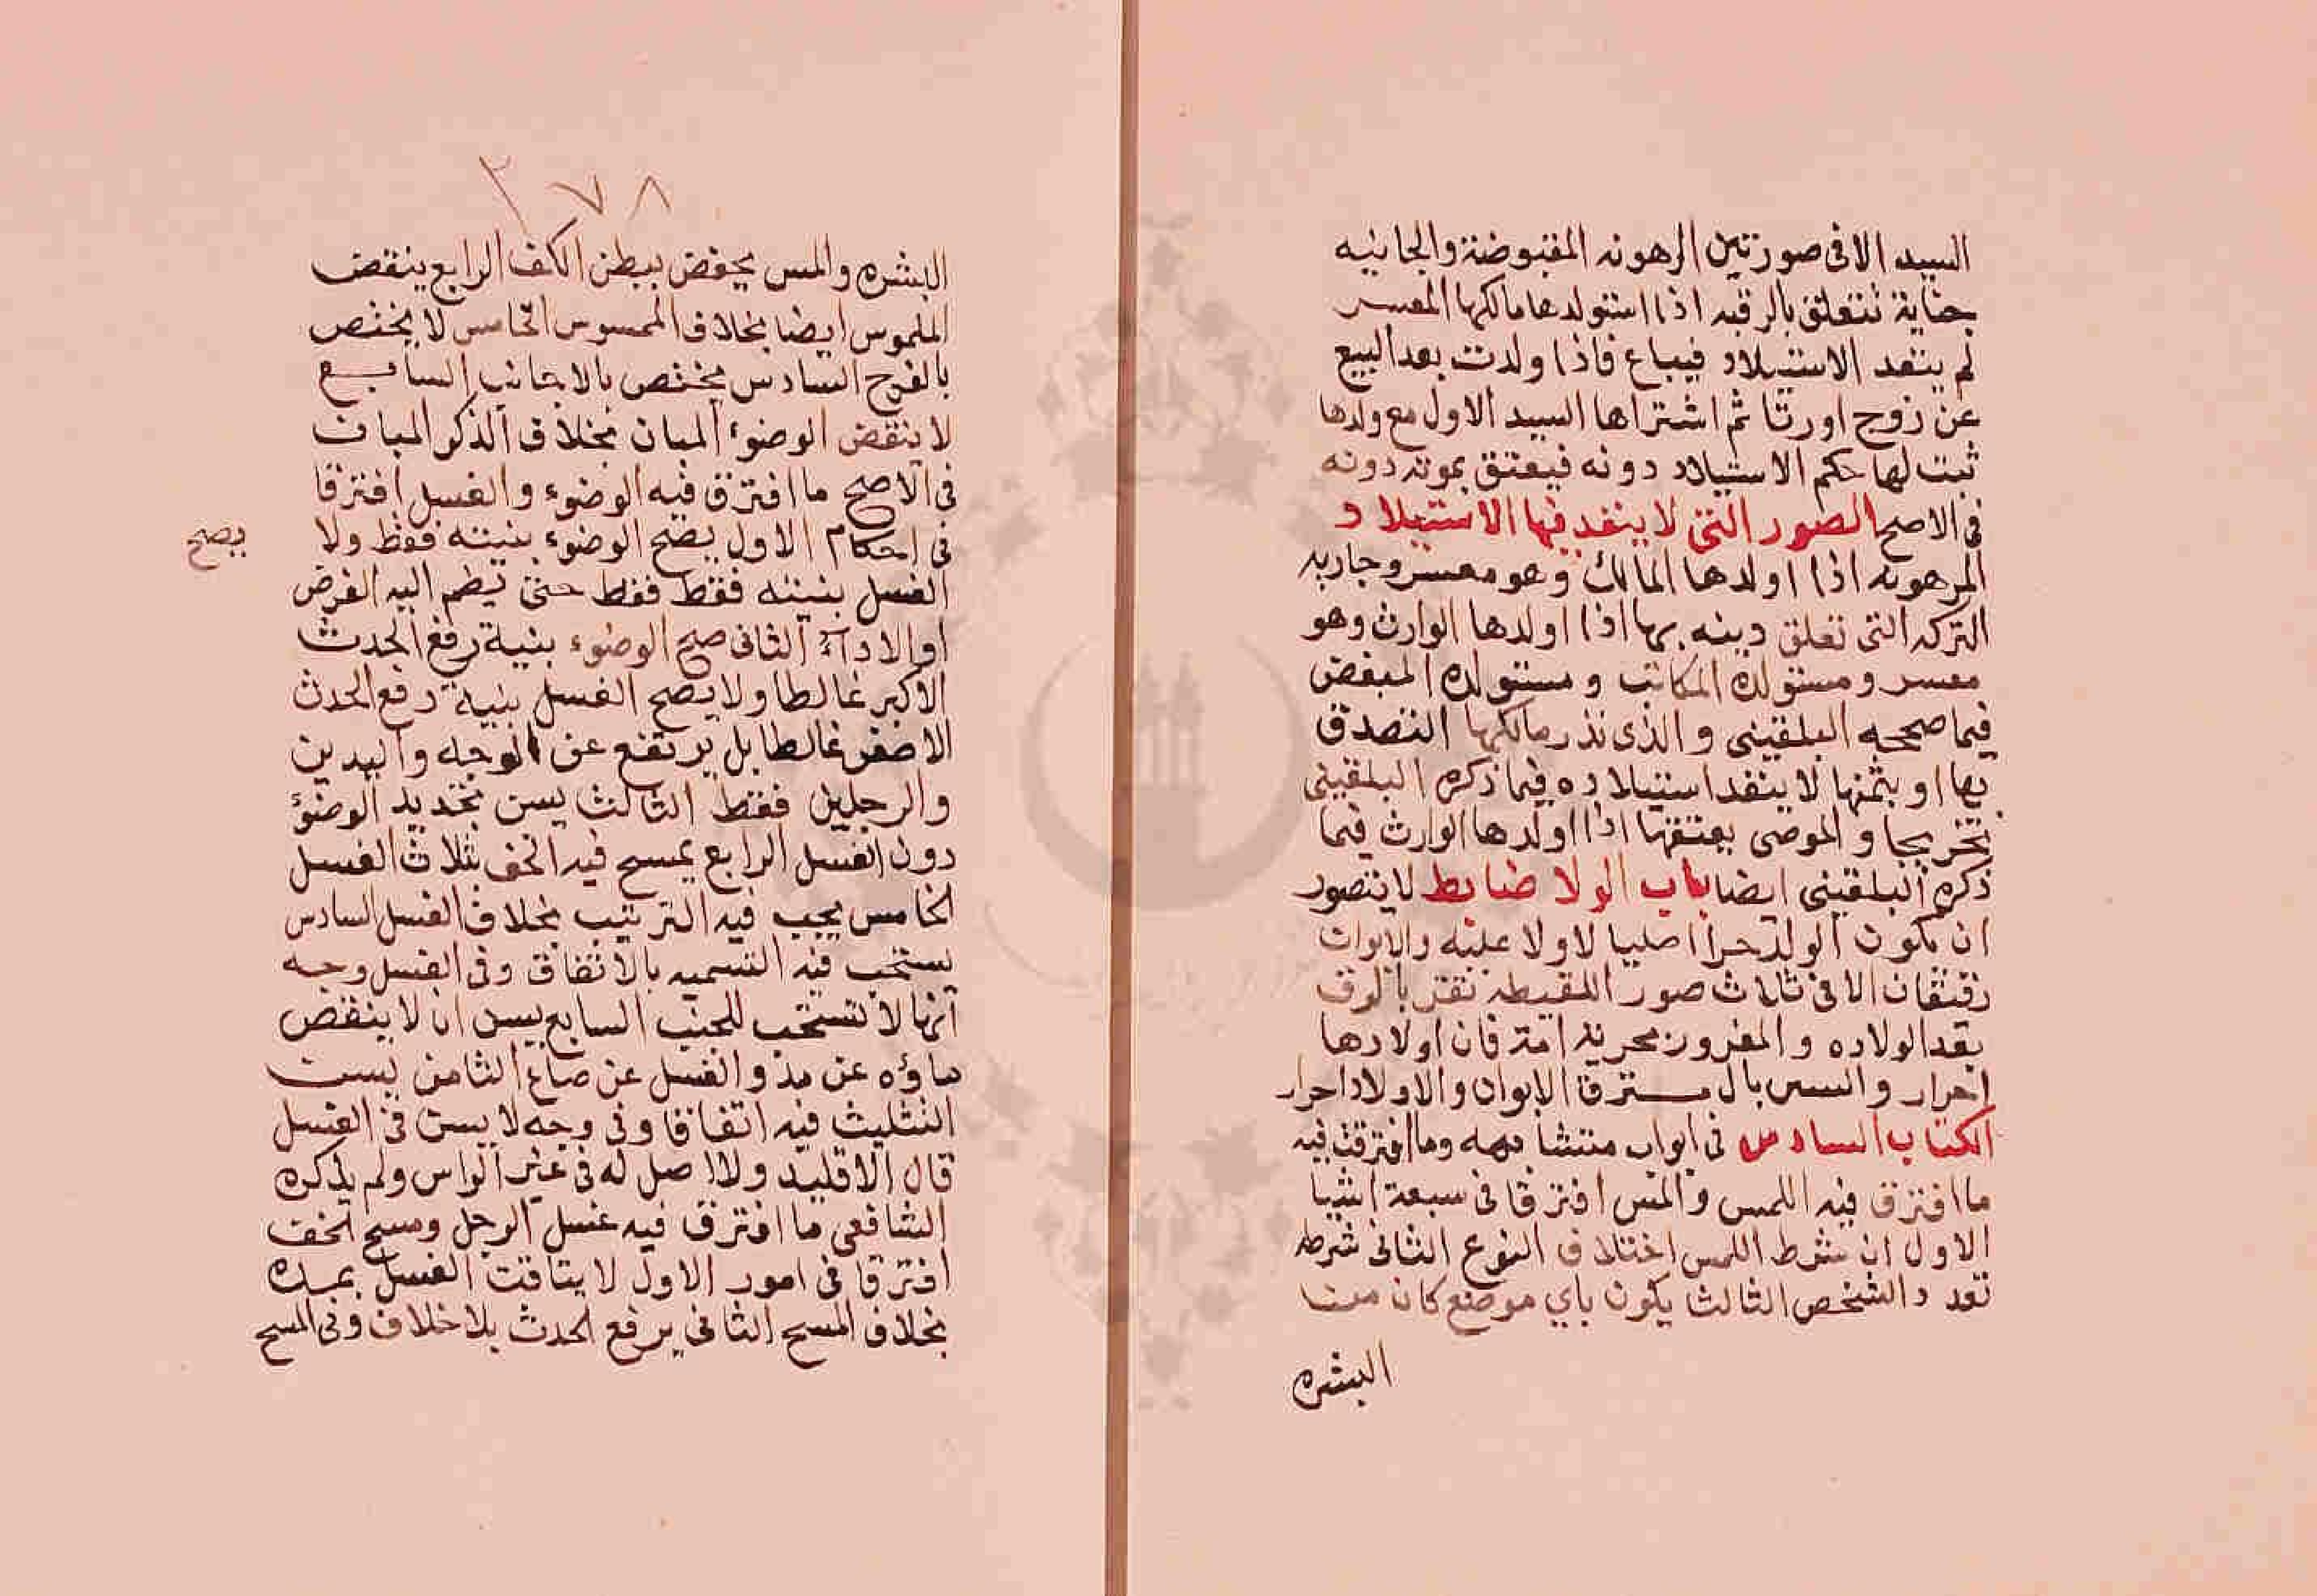 السيد الا فى صورتين الرهونه المقبوضة والجانيه
جناية تتعلق بالرقبه اذا استولدها مالكها المعسر
لم ينفد الاستيلاد فيباع فاذا ولدت بعد البيع
عن زوج اورتا ثم اشتراها السيد الاول مع ولدها
ثبت لها حكم الاستيلاد دونه فيعتق بموته دونه
فى الاصح الصور التى لا ينفد فيها الاستيلاد
المرهونه اذا اولدها المالك وهو معسر وجاريه
التركه التى تعلق دينه بها اذا اولدها الوارث وهو
معسر ومستولده المكاتب ومستولده المبعض
فيما صححه البلقينى والذى نذر مالكها التصدق
بها او بثمنها لا ينفد استيلاده فيما ذكره البلقينى
تخريجا والموصى بعتقها اذا اولدها الوارث فيما
ذكره البلقينى ايضا باب الولا ضابط لا يتصور
ان يكون الولد حرا اصليا لا ولا عليه والابوان
رقيقان الا فى ثلاث صور اللقيطه تقر بالرق
بعد الولاده والمغرور بحرية امة فان اولادها
احرار والسبى بال يسترق الابوان والاولاد احرار
الكتاب السادس فى ابواب متشابهه وما افترقت فيه
ما افترق فيه اللمس والمس افترقا فى سبعة اشيا
الاول ان شرط اللمس اختلاف النوع الثانى شرطه
تعدد الشخص الثالث يكون باي موضع كان من
البشره
٢٧٨
البشره والمس يختص ببطن الكف الرابع ينقض
الملموس ايضا بخلاف الممسوس الخامس لا يختص
بالفرج السادس يختص بالاجانب السابع
لا ينقض الوضوء المبان بخلاف الذكر المبان
فى الاصح ما افترق فيه الوضوء والغسل افترقا
فى احكام الاول يصح الوضوء بنيته فقط ولا
يصح
الغسل بنيته فقط فقط حتى يضم اليه الفرض
او الاداء الثانى صح الوضوء بنية رفع الحدث
الاكبر غالطا ولا يصح الغسل بنية رفع الحدث
الاصغر غالطا بل يرتفع عن الوجه واليدين
والرجلين فقط الثالث يسن تجديد الوضوء
دون الغسل الرابع يمسح فيه الخف بثلاث الغسل
الخامس يجب فيه الترتيب بخلاف الغسل السادس
يستحب فيه التسميه بالاتفاق وفى الغسل وجه
انها لا تستحب للجنب السابع يسن ان لا ينقض
ماؤه عن مد والغسل عن صاع الثامن يسن
التثليث فيه اتفاقا وفى وجه لا يسن فى الغسل
قال الاقليد ولا اصل له فى غير الراس ولم يذكره
الشافعى ما افترق فيه غسل الرجل ومسح الخف
افترقا فى امور الاول لا يتاقت الغسل بمده
بخلاف المسح الثانى يرفع الحدث بلا خلاف وفى المسح